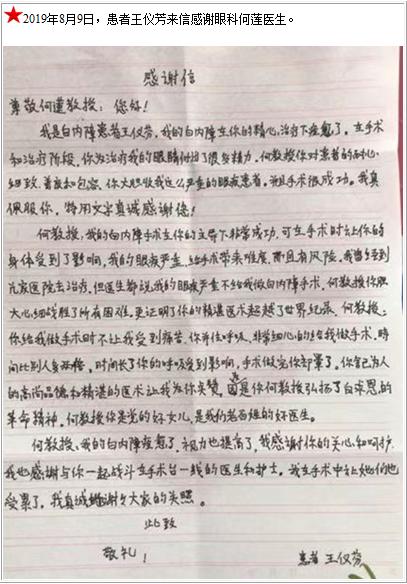 ★2019年8月9日，患者王仪芳来信感谢眼科何莲医生。
感谢信
尊敬何莲教授：您好！
我是白内障患者王仪芳，我的白内障在你的精心治疗下痊愈了，在手术
和治疗阶段，你为治疗我的眼睛付出了很多精力。何教授你对患者的耐心、
细致、善良和包容，你大胆收我这么严重的眼疾患者，并且手术很成功。我真
佩服你，特用文字真诚感谢您！
何教授，我的白内障手术在你的主导下非常成功，可在手术时让你的
身体受到了影响，我的眼疾严重，给手术带来难度，而且有风险，我曾经到
几家医院去治疗，但医生都说我的眼疾严重不给我做白内障手术，何教授你胆
大心细战胜了所有困难，更证明了你的精湛医术超越了世界纪录，何教授：
你给我做手术时不让我受到痛苦，你并住呼吸、非常细心的给我做手术，时
间比别人多两倍，时间长了你的呼吸受到影响，手术做完你却晕了，你舍己为人
的高尚品德和精湛的医术让我为你点赞，是你何教授弘扬了白求恩的
革命精神，何教授你是党的好女儿，是我们老百姓的好医生。
何教授，我的白内障痊愈了，视力也提高了，我感谢你的关心和呵护，
我也感谢与你一起战斗在手术台一线的医生和护士，我在手术中让她们也
受累了，我真诚地谢谢大家的关照。
此致
敬礼！
患者 王仪芳